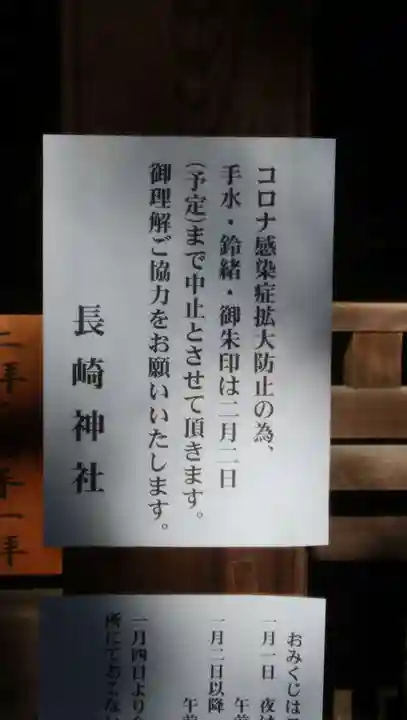 コロナ感染症拡大防止の為、
手水・鈴緒・御朱印は二月二日
(予定)まで中止とさせて頂きます。
御理解ご協力をお願いいたします。
長崎神社
おみくじは
一月一日
午前
一月二日以降
午前
一月四日より
所にておこない
二拝
一拝